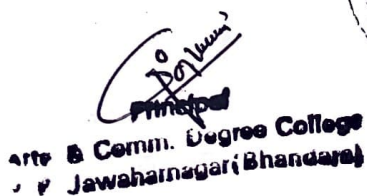 Principal
Arts & Comm. Degree College
Jawaharnagar (Bhandara)